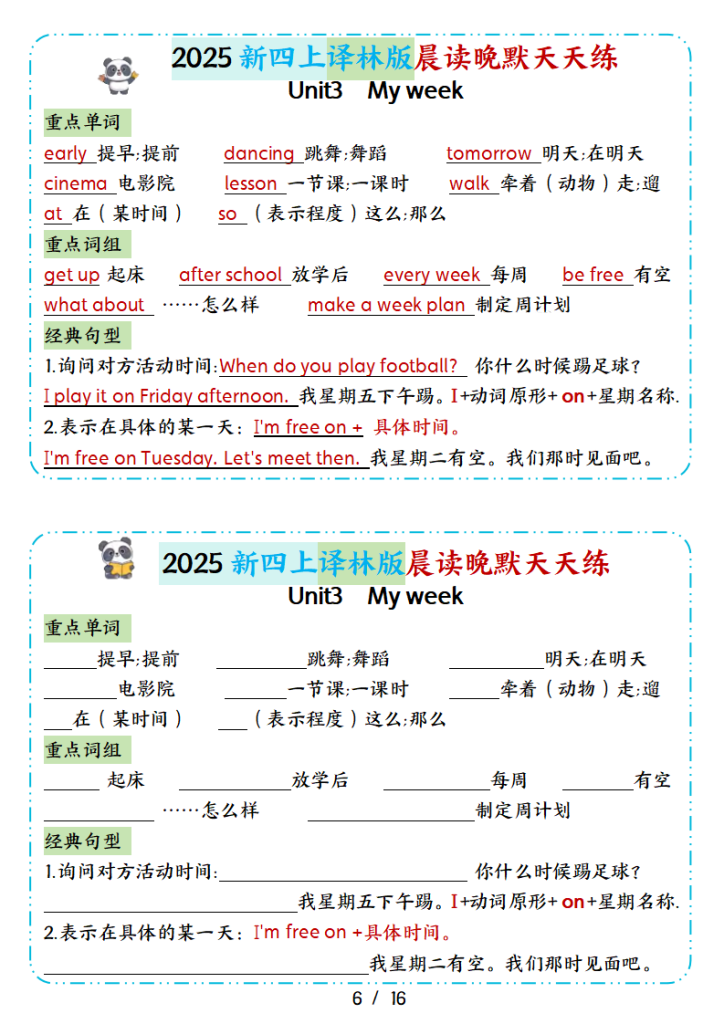 2025 新四上译林版晨读晚默天天练
Unit3 My week
重点单词
early 提早;提前 dancing 跳舞;舞蹈 tomorrow 明天;在明天
cinema 电影院 lesson 一节课;一课时 walk 牵着（动物）走;遛
at 在（某时间） so （表示程度）这么;那么
重点词组
get up 起床 after school 放学后 every week 每周 be free 有空
what about ……怎么样 make a week plan 制定周计划
经典句型
1.询问对方活动时间:When do you play football? 你什么时候踢足球?
I play it on Friday afternoon. 我星期五下午踢。I+动词原形+ on+星期名称.
2.表示在具体的某一天：I'm free on + 具体时间。
I'm free on Tuesday. Let's meet then. 我星期二有空。我们那时见面吧。
2025 新四上译林版晨读晚默天天练
Unit3 My week
重点单词
_____提早;提前 _________跳舞;舞蹈 _________明天;在明天
_______电影院 ______一节课;一课时 _____牵着（动物）走;遛
___在（某时间） ___（表示程度）这么;那么
重点词组
_____ 起床 ___________放学后 __________每周 _______有空
___________ ……怎么样 ________________制定周计划
经典句型
1.询问对方活动时间:________________________ 你什么时候踢足球?
________________________我星期五下午踢。I+动词原形+ on+星期名称.
2.表示在具体的某一天：I'm free on +具体时间。
________________________________我星期二有空。我们那时见面吧。
6 / 16